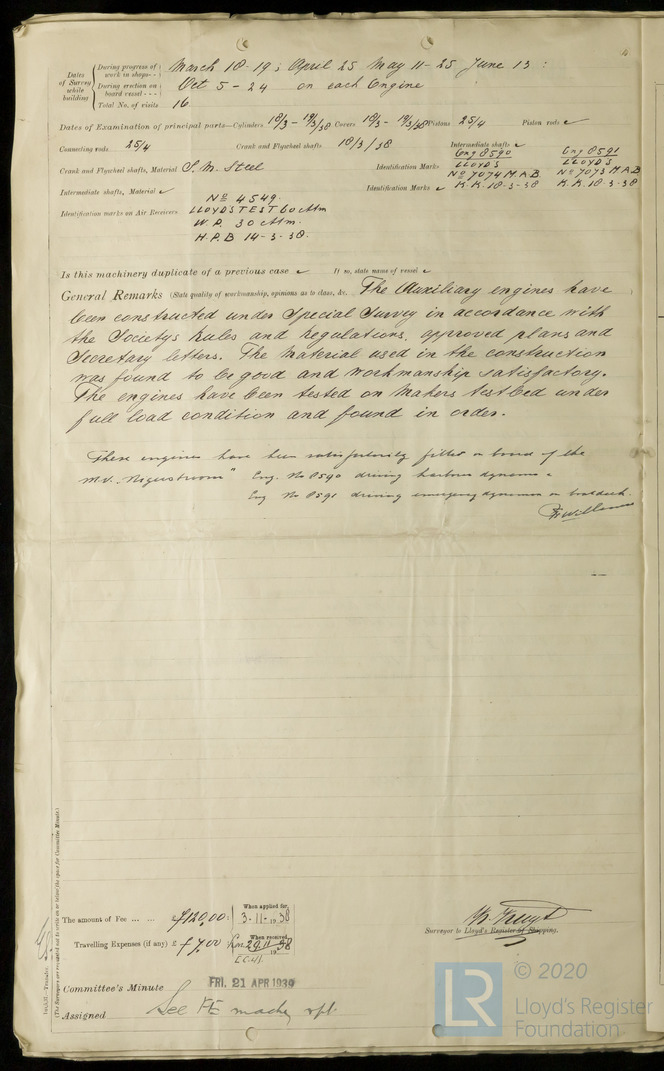 4
Dates of Survey while building
During progress of work in shops - - March 18-19; April 25 May 11-25 June 13:
During erection on board vessel - - - Oct 5-24 on each Engine
Total No. of visits 16
Dates of Examination of principal parts—Cylinders 18/3 - 19/3/38 Covers 18/3 - 19/3/38 Pistons 25/4 Piston rods
Connecting rods 25/4 Crank and Flywheel shafts 18/3/38 Intermediate shafts
Crank and Flywheel shafts, Material S. M. Steel Identification Marks Eng 8590 LLOYDS No 7074 M.A.B. K.K. 18-3-38 Eng 8591 LLOYDS No 7073 M.A.B. K.K. 18-3-38
Intermediate shafts, Material Identification Marks
Identification marks on Air Receivers No 4549
LLOYDS TEST 60 Atm
W.P. 30 Atm.
H.P.B 14-3-38.
Is this machinery duplicate of a previous case If so, state name of vessel
General Remarks (State quality of workmanship, opinions as to class, &c. The Auxiliary engines have
been constructed under Special Survey in accordance with
the Societys Rules and regulations, approved plans and
Secretary letters. The Material used in the construction
was found to be good and workmanship satisfactory.
The engines have been tested on Makers testbed under
full load condition and found in order.
These engines have been satisfactorily fitted on board of the
M.V. "Nigerstroom" Eng. No 8590 driving harbour dynamo &
Eng No 8591 driving emergency dynamo on boatdeck.
The amount of Fee ... ... £120.00: When applied for, 3-11-1938
Travelling Expenses (if any) £ £7.00 When received, 29.11 1938
Surveyor to Lloyd's Register of Shipping.
Committee's Minute FRI. 21 APR 1939
Assigned See F.E. machy rpt.
(The Surveyors are requested not to write on or below the space for Committee's Minute.)
© 2020
LR
Lloyd's Register
Foundation